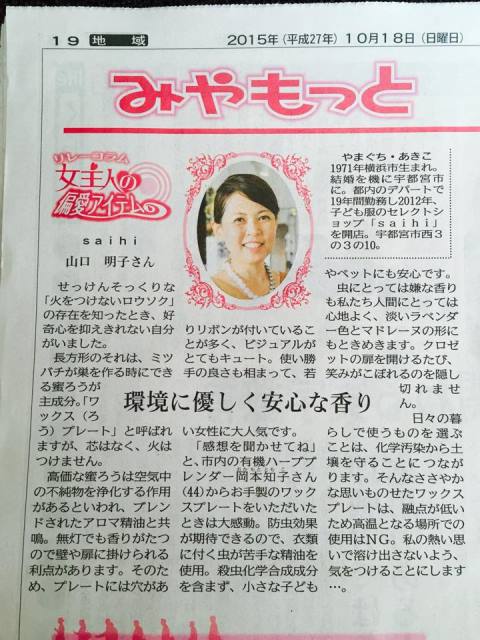 19 地域
2015年(平成27年)10月18日(日曜日)
みやもっと
リレーコラム
女主人の
偏愛アイテム
saihi
山口 明子さん
やまぐち・あきこ
1971年横浜市生まれ。
結婚を機に宇都宮市
に。都内のデパートで
19年間勤務し2012年、
子ども服のセレクトシ
ョップ「saihi」
を開店。宇都宮市西3
の3の10。
環境に優しく安心な香り
せっけんそっくりな
「火をつけないロウソク」
の存在を知ったとき、好
奇心を抑えきれない自分
がいました。
長方形のそれは、ミツ
バチが巣を作る時にでき
る蜜ろうが
主成分。「ワ
ックス(ろ
う)プレート」と呼ばれ
ますが、芯はなく、火は
つけません。
高価な蜜ろうは空気中
の不純物を浄化する作用
があるといわれ、ブレン
ドされたアロマ精油と共
鳴。無灯でも香りがたつ
ので壁や扉に掛けられる
利点があります。そのた
め、プレートには穴があ
りリボンが付いているこ
とが多く、ビジュアルが
とてもキュート。使い勝
手の良さも相まって、若
い女性に大人気です。
「感想を聞かせてね」
と、市内の有機ハーブブ
レンダー岡本知子さん
(44)からお手製のワック
スプレートをいただいた
ときは大感動。防虫効果
が期待できるので、衣類
に付く虫が苦手な精油を
使用。殺虫化学合成成分
を含まず、小さな子ども
やペットにも安心です。
虫にとっては嫌な香り
も私たち人間にとっては
心地よく、淡いラベンダ
ー色とマドレーヌの形に
もときめきます。クロゼ
ットの扉を開けるたび、
笑みがこぼれるのを隠し
切れませ
ん。
日々の暮
らしで使うものを選ぶ
ことは、化学汚染から土
壌を守ることにつなが
ります。そんなささやか
な思いものせたワックス
プレートは、融点が低い
ため高温となる場所での
使用はNG。私の熱い思
いで溶け出さないよう、
気をつけることにします
…。